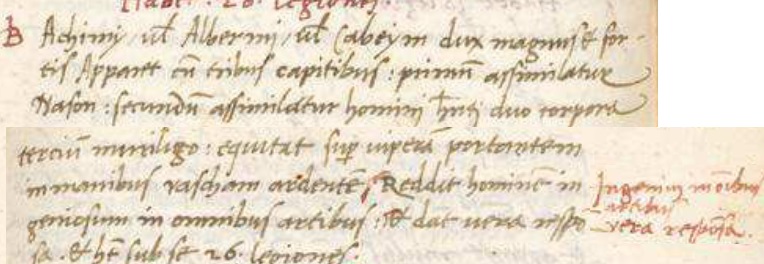 Habet . 26. legiones.
B Achimy / ul Albermi / ul Cabeym dux magnus & for-
tis Apparet cū tribus capitibus : primū assimilatur
Nason : secundū assimilatur homini hñti duo corpora
tercium murilego : equitat sup viperā portantem
in manibus rascham ardentē, Reddit hominē in
geniosum in omnibus artibus : & dat uera respō
sa . & ht sub se 26. legiones.
Ingeniū in oībus
artibus
vera respōsa.